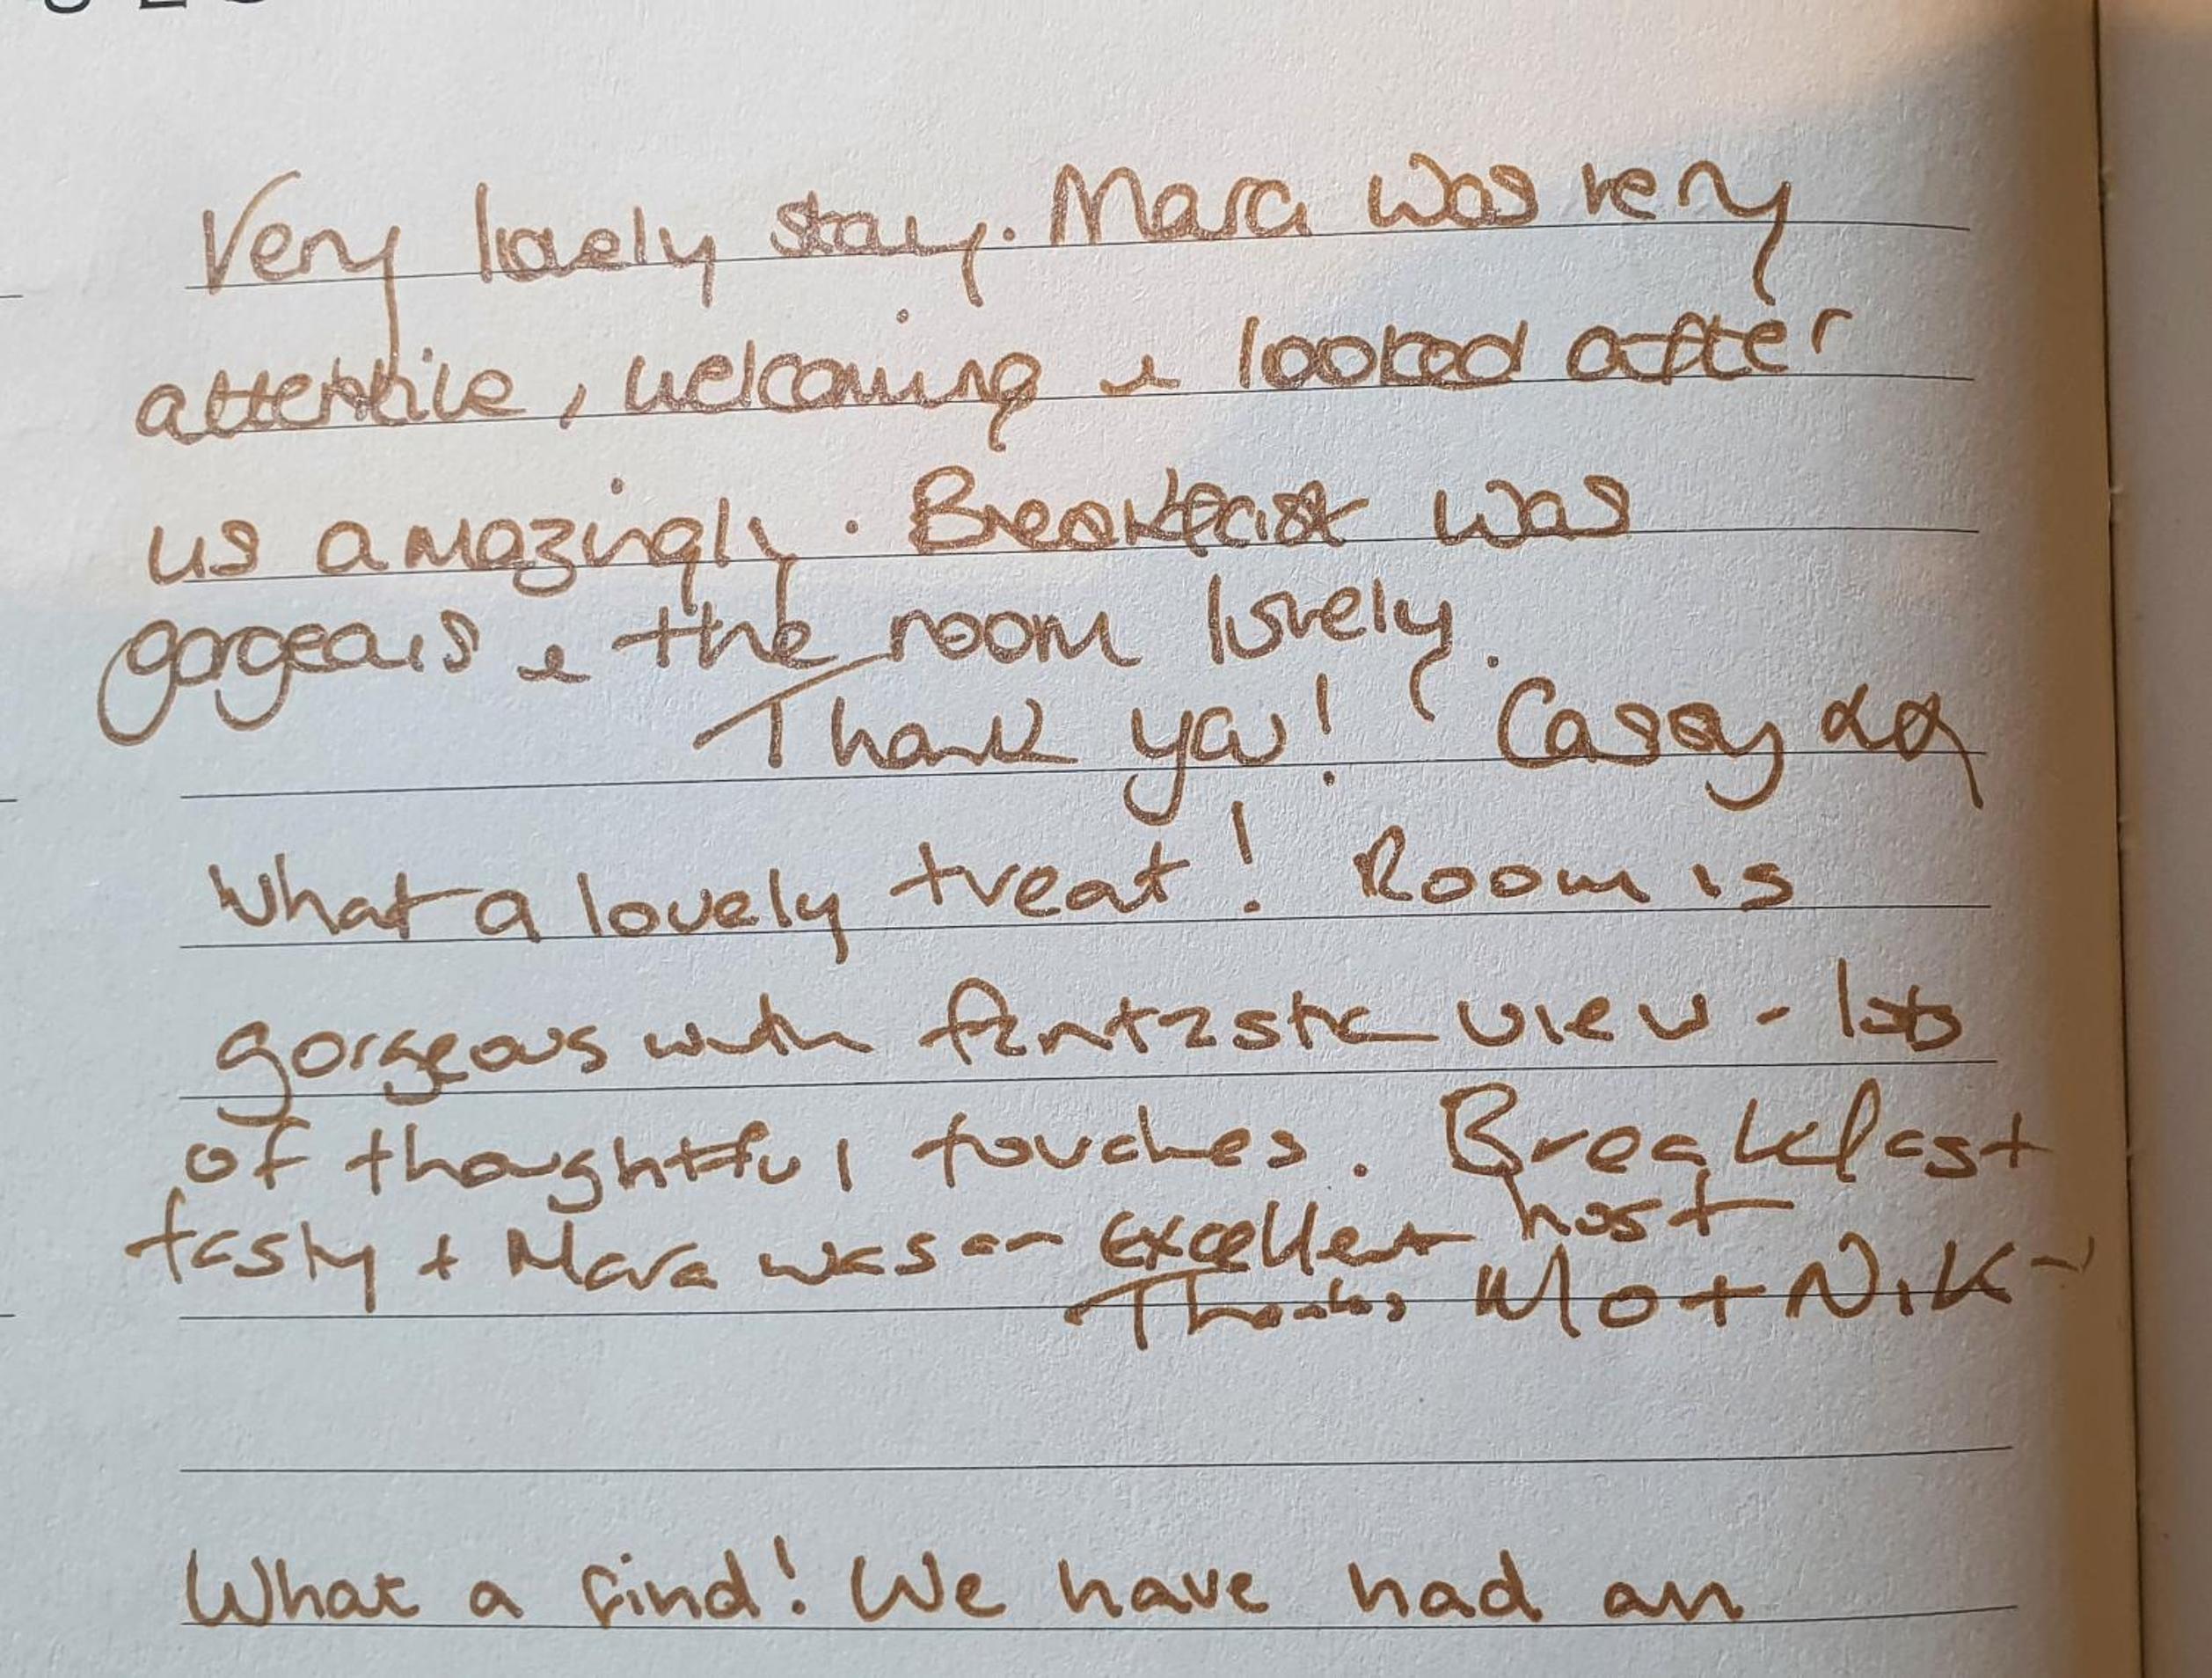 Very lovely stay. Mara was very
attentive, welcoming & looked after
us amazingly. Breakfast was
gorgeous & the room lovely.
Thank you! Cassy xx
What a lovely treat! Room is
gorgeous with fantastic view - lots
of thoughtful touches. Breakfast
tasty + Mara was an excellent host
Thanks Mo + Nik
What a find! We have had an